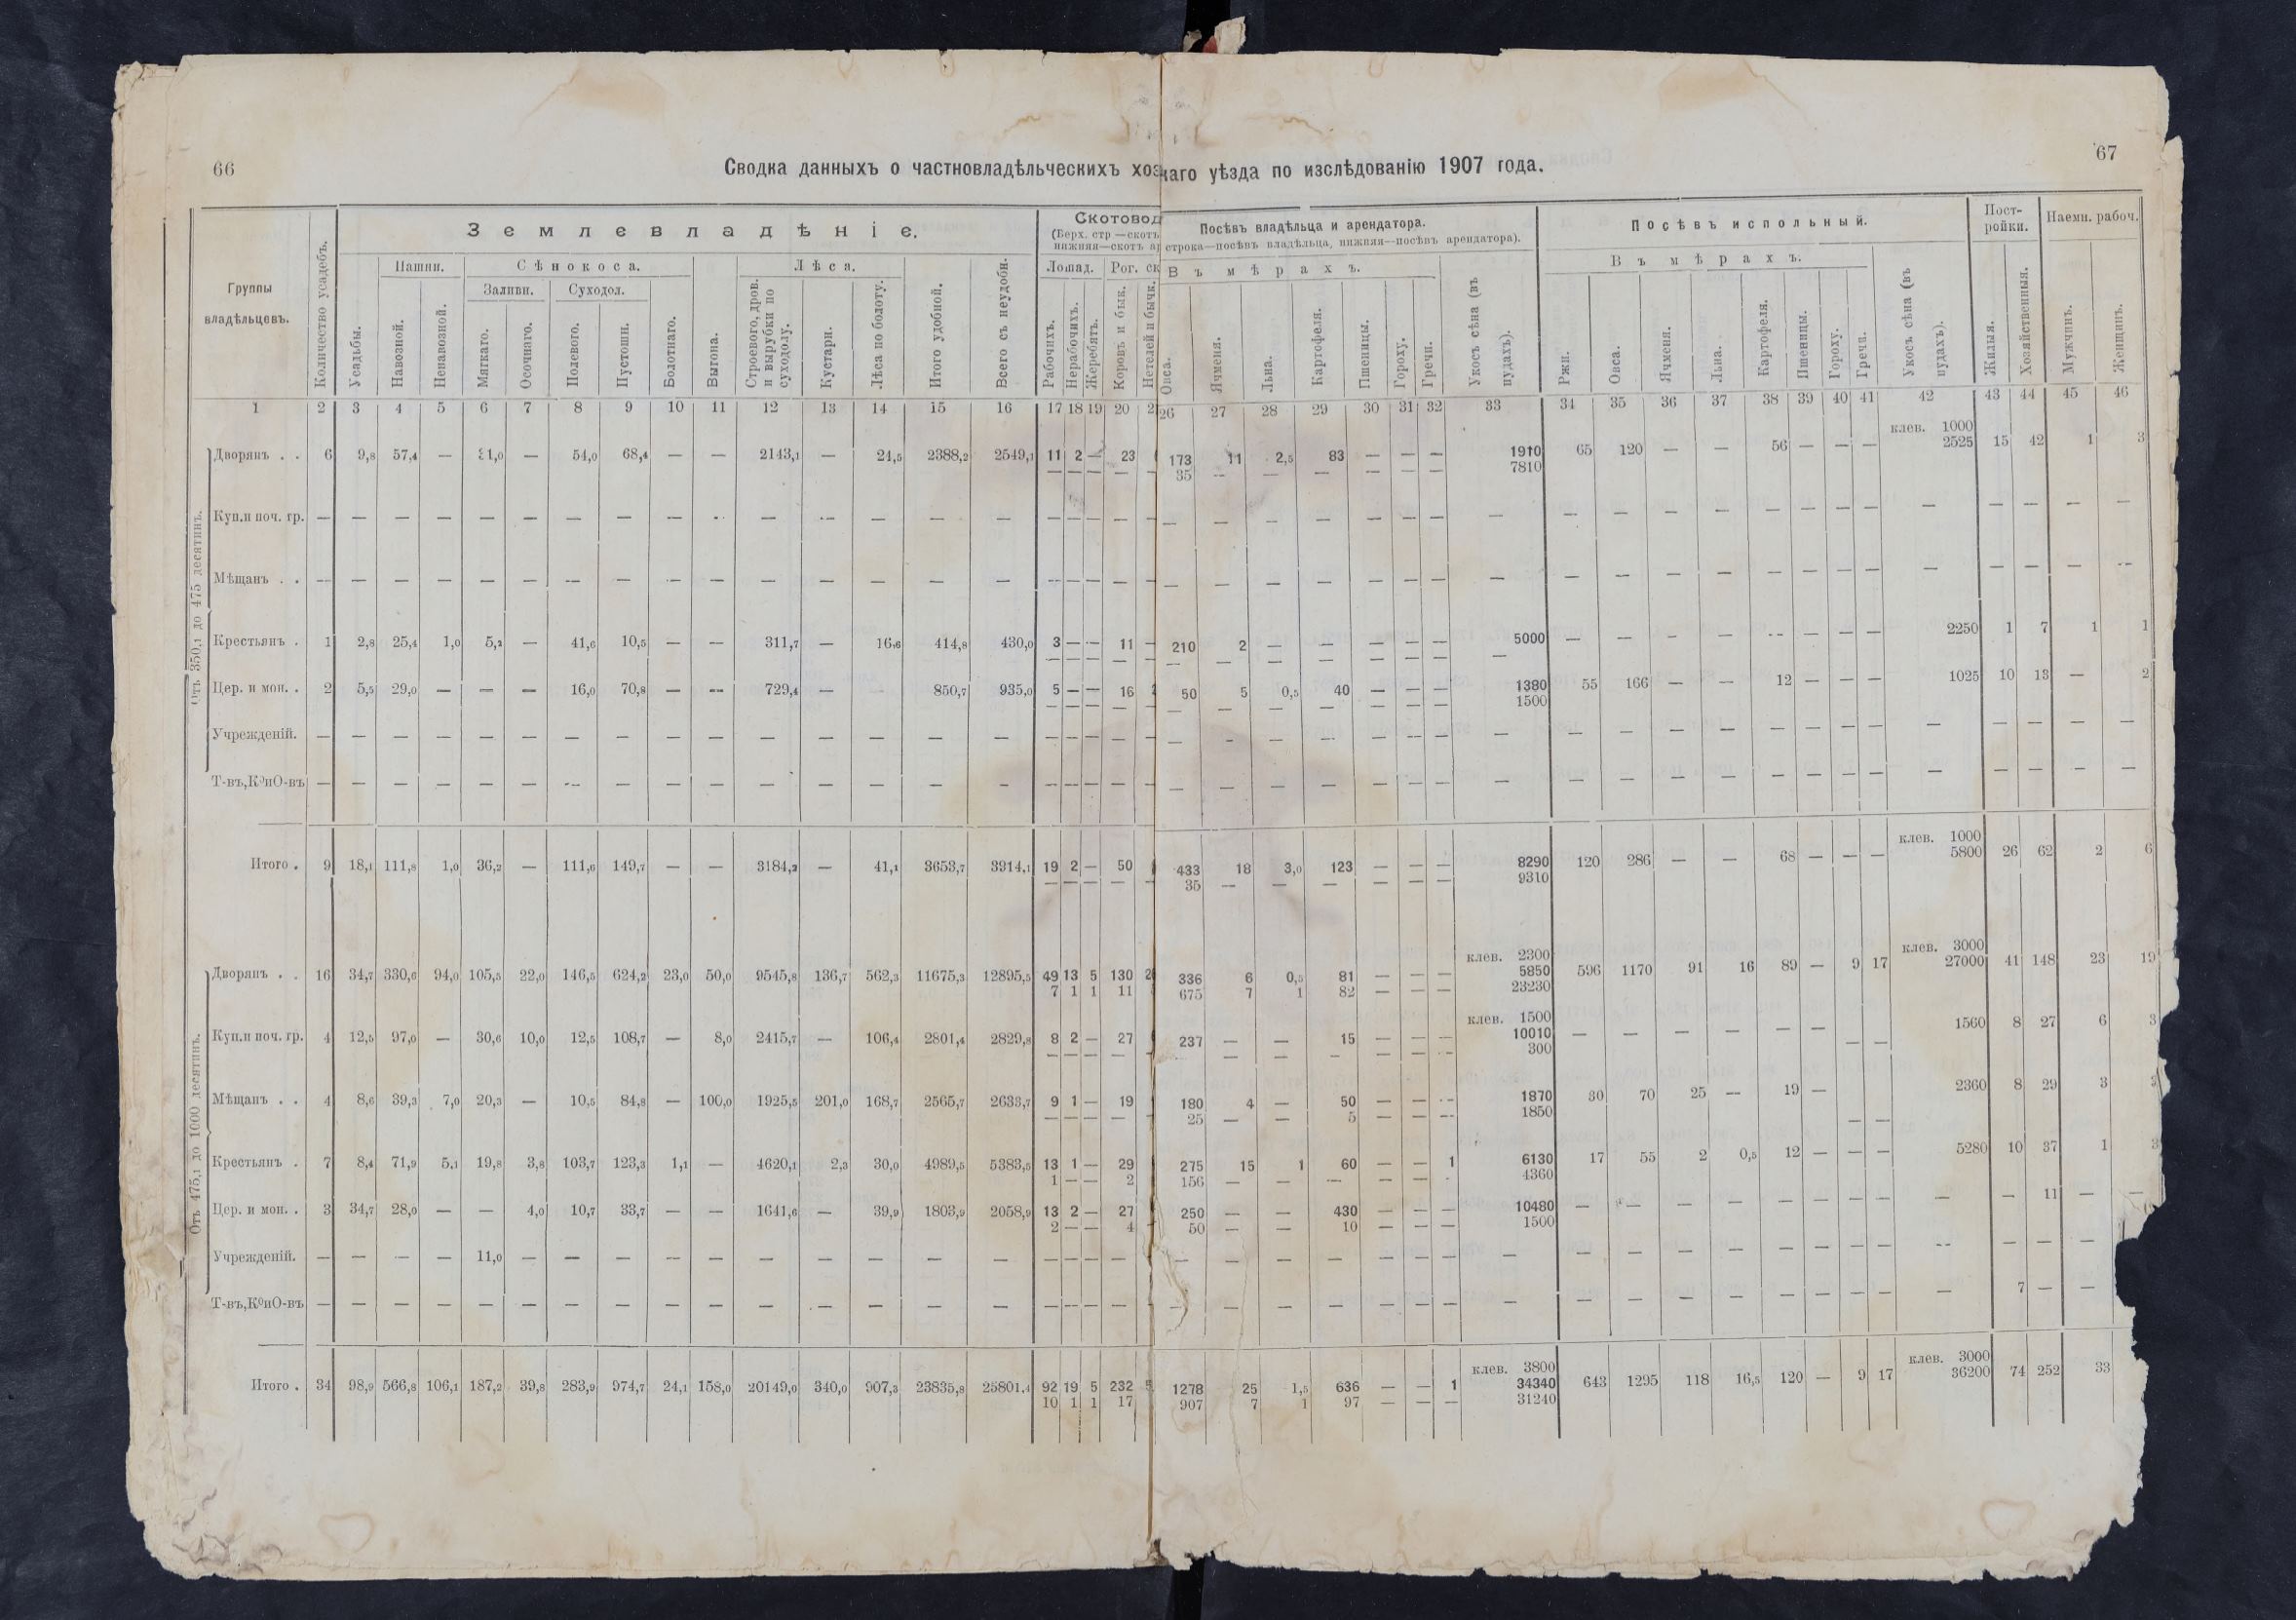 66
67
Сводка данныхъ о частновладѣльческихъ хоз
каго уѣзда по изслѣдованію 1907 года.
Группы владѣльцевъ.
Количество усадебъ.
Землевладѣніе.
Усадьбы.
Пашни.
Навозной.
Ненавозной.
Сѣнокоса.
Заливн.
Мягкаго.
Осочнаго.
Суходол.
Полевого.
Пустошн.
Болотнаго.
Выгона.
Лѣса.
Строевого, дров. и вырубки по суходолу.
Кустарн.
Лѣса по болоту.
Итого удобной.
Всего съ неудобн.
Скотовод
(Верх. стр —скотъ
нижняя—скотъ ар
Лошад.
Рабочихъ.
Нерабочихъ.
Жеребятъ.
Рог. ск
Коровъ и бык.
Нетелей и бычк.
Посѣвъ владѣльца и арендатора.
строка—посѣвъ владѣльца, нижняя—посѣвъ арендатора).
Въ мѣрахъ.
Овса.
Ячменя.
Льна.
Картофеля.
Пшеницы.
Гороху.
Гречи.
Укосъ сѣна (въ пудахъ).
Посѣвъ испольный.
Въ мѣрахъ.
Ржи.
Овса.
Ячменя.
Льна.
Картофеля.
Пшеницы.
Гороху.
Гречи.
Укосъ сѣна (въ пудахъ).
Пост-ройки.
Жилыя.
Хозяйственныя.
Наемн. рабоч.
Мужчинъ.
Женщинъ.
1 2 3 4 5 6 7 8 9 10 11 12 13 14 15 16 17 18 19 20 2 26 27 28 29 30 31 32 33 34 35 36 37 38 39 40 41 42 43 44 45 46
350,1 до 475 десятинъ.
клев. 1000
Дворянъ . . 6 9,8 57,4 — 31,0 — 54,0 68,4 — — 2143,1 — 24,5 2388,2 2549,1 11 2 — 23 173 11 2,5 83 — — — 1910 65 120 — — 56 — — — 2525 15 42 1 3
— — — — 35 — — — — — — 7810
Куп.и поч. гр. — — — — — — — — — — — — — — — — — — — — — — — — — — — — — — — — — — — — — — — —
Мѣщанъ . . — — — — — — — — — — — — — — — — — — — — — — — — — — — — — — — — — — — — — — — —
Крестьянъ . 1 2,8 25,4 1,0 5,2 — 41,6 10,5 — — 311,7 — 16,6 414,8 430,0 3 — — 11 — 210 2 — — — — — 5000 — — — — — — — — 2250 1 7 1 1
— — — — — — — — — — — —
Цер. и мон. . 2 5,5 29,0 — — — 16,0 70,8 — — 729,4 — 850,7 935,0 5 — — 16 50 5 0,5 40 — — — 1380 55 166 — — 12 — — — 1025 10 13 — 2
— — — — — — — — — — — 1500
Учрежденій. — — — — — — — — — — — — — — — — — — — — — — — — — — — — — — — — — — — — — — — —
Т-въ,К⁰иО-въ — — — — — — — — — — — — — — — — — — — — — — — — — — — — — — — — — — — — — — — —
клев. 1000
Итого . 9 18,1 111,8 1,0 36,2 — 111,6 149,7 — — 3184,2 — 41,1 3653,7 3914,1 19 2 — 50 433 18 3,0 123 — — — 8290 120 286 — — 68 — — — 5800 26 62 2 6
— — — — 35 — — — — — — 9310
Отъ 475,1 до 1000 десятинъ.
клев. 2300 клев. 3000
Дворянъ . . 16 34,7 330,6 94,0 105,5 22,0 146,5 624,2 23,0 50,0 9545,8 136,7 562,3 11675,3 12895,5 49 13 5 130 2 336 6 0,5 81 — — — 5850 596 1170 91 16 89 — 9 17 27000 41 148 23 19
7 1 1 11 675 7 1 82 — — — 23230
клев. 1500
Куп.и поч. гр. 4 12,5 97,0 — 30,6 10,0 12,5 108,7 — 8,0 2415,7 — 106,4 2801,4 2829,8 8 2 — 27 237 — — 15 — — — 10010 — — — — — — — — 1560 8 27 6 3
— — — — — — — — — — — 300
Мѣщанъ . . 4 8,6 39,3 7,0 20,3 — 10,5 84,8 — 100,0 1925,5 201,0 168,7 2565,7 2633,7 9 1 — 19 180 4 — 50 — — — 1870 30 70 25 — 19 — — — 2360 8 29 3 3
— — — — 25 — — 5 — — — 1850
Крестьянъ . 7 8,4 71,9 5,1 19,8 3,8 103,7 123,3 1,1 — 4620,1 2,3 30,0 4989,5 5383,5 13 1 — 29 275 15 1 60 — — 1 6130 17 55 2 0,5 12 — — — 5280 10 37 1 3
1 — — 2 156 — — — — — 4360
Цер. и мон. . 3 34,7 28,0 — — 4,0 10,7 33,7 — — 1641,6 — 39,9 1803,9 2058,9 13 2 — 27 250 — — 430 — — — 10480 — — — — — — — — — — 11 — —
2 — — 4 50 — — 10 — — — 1500
Учрежденій. — — — — 11,0 — — — — — — — — — — — — — — — — — — — — — — — — — — — — — — — — — — —
Т-въ,К⁰иО-въ — — — — — — — — — — — — — — — — — — — — — — — — — — — — — — — — — — — — 7 — —
клев. 3800 клев. 3000
Итого . 34 98,9 566,8 106,1 187,2 39,8 283,9 974,7 24,1 158,0 20149,0 340,0 907,3 23835,8 25801,4 92 19 5 232 5 1278 25 1,5 636 — — 1 34340 643 1295 118 16,5 120 — 9 17 36200 74 252 33
10 1 1 17 907 7 1 97 — — — 31240